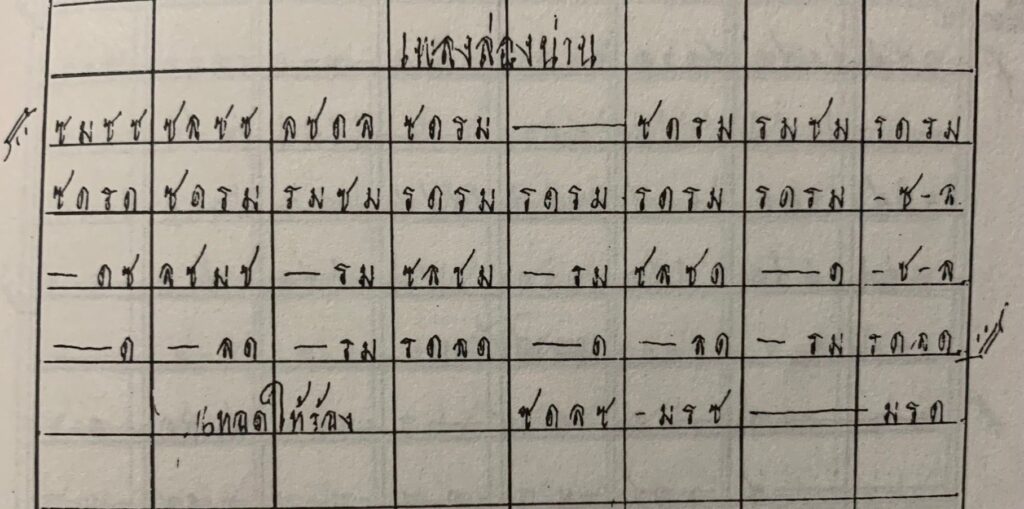 เพลงล่องน่าน
ซมซซ ซลซซ ลซดล ซดรม ——— ซดรม รมซม รดรม
ซดรด ซดรม รมซม รดรม รดรม รดรม รดรม -ซ-ล
— ดซ ลซมซ — รม ซลซม — รม ซลซด —— ด -ซ-ล
—— ด — ลด — รม รดลด —— ด — ลด — รม รดลด
ทอดให้ร้อง ซดลซ -มรซ ——— มรด